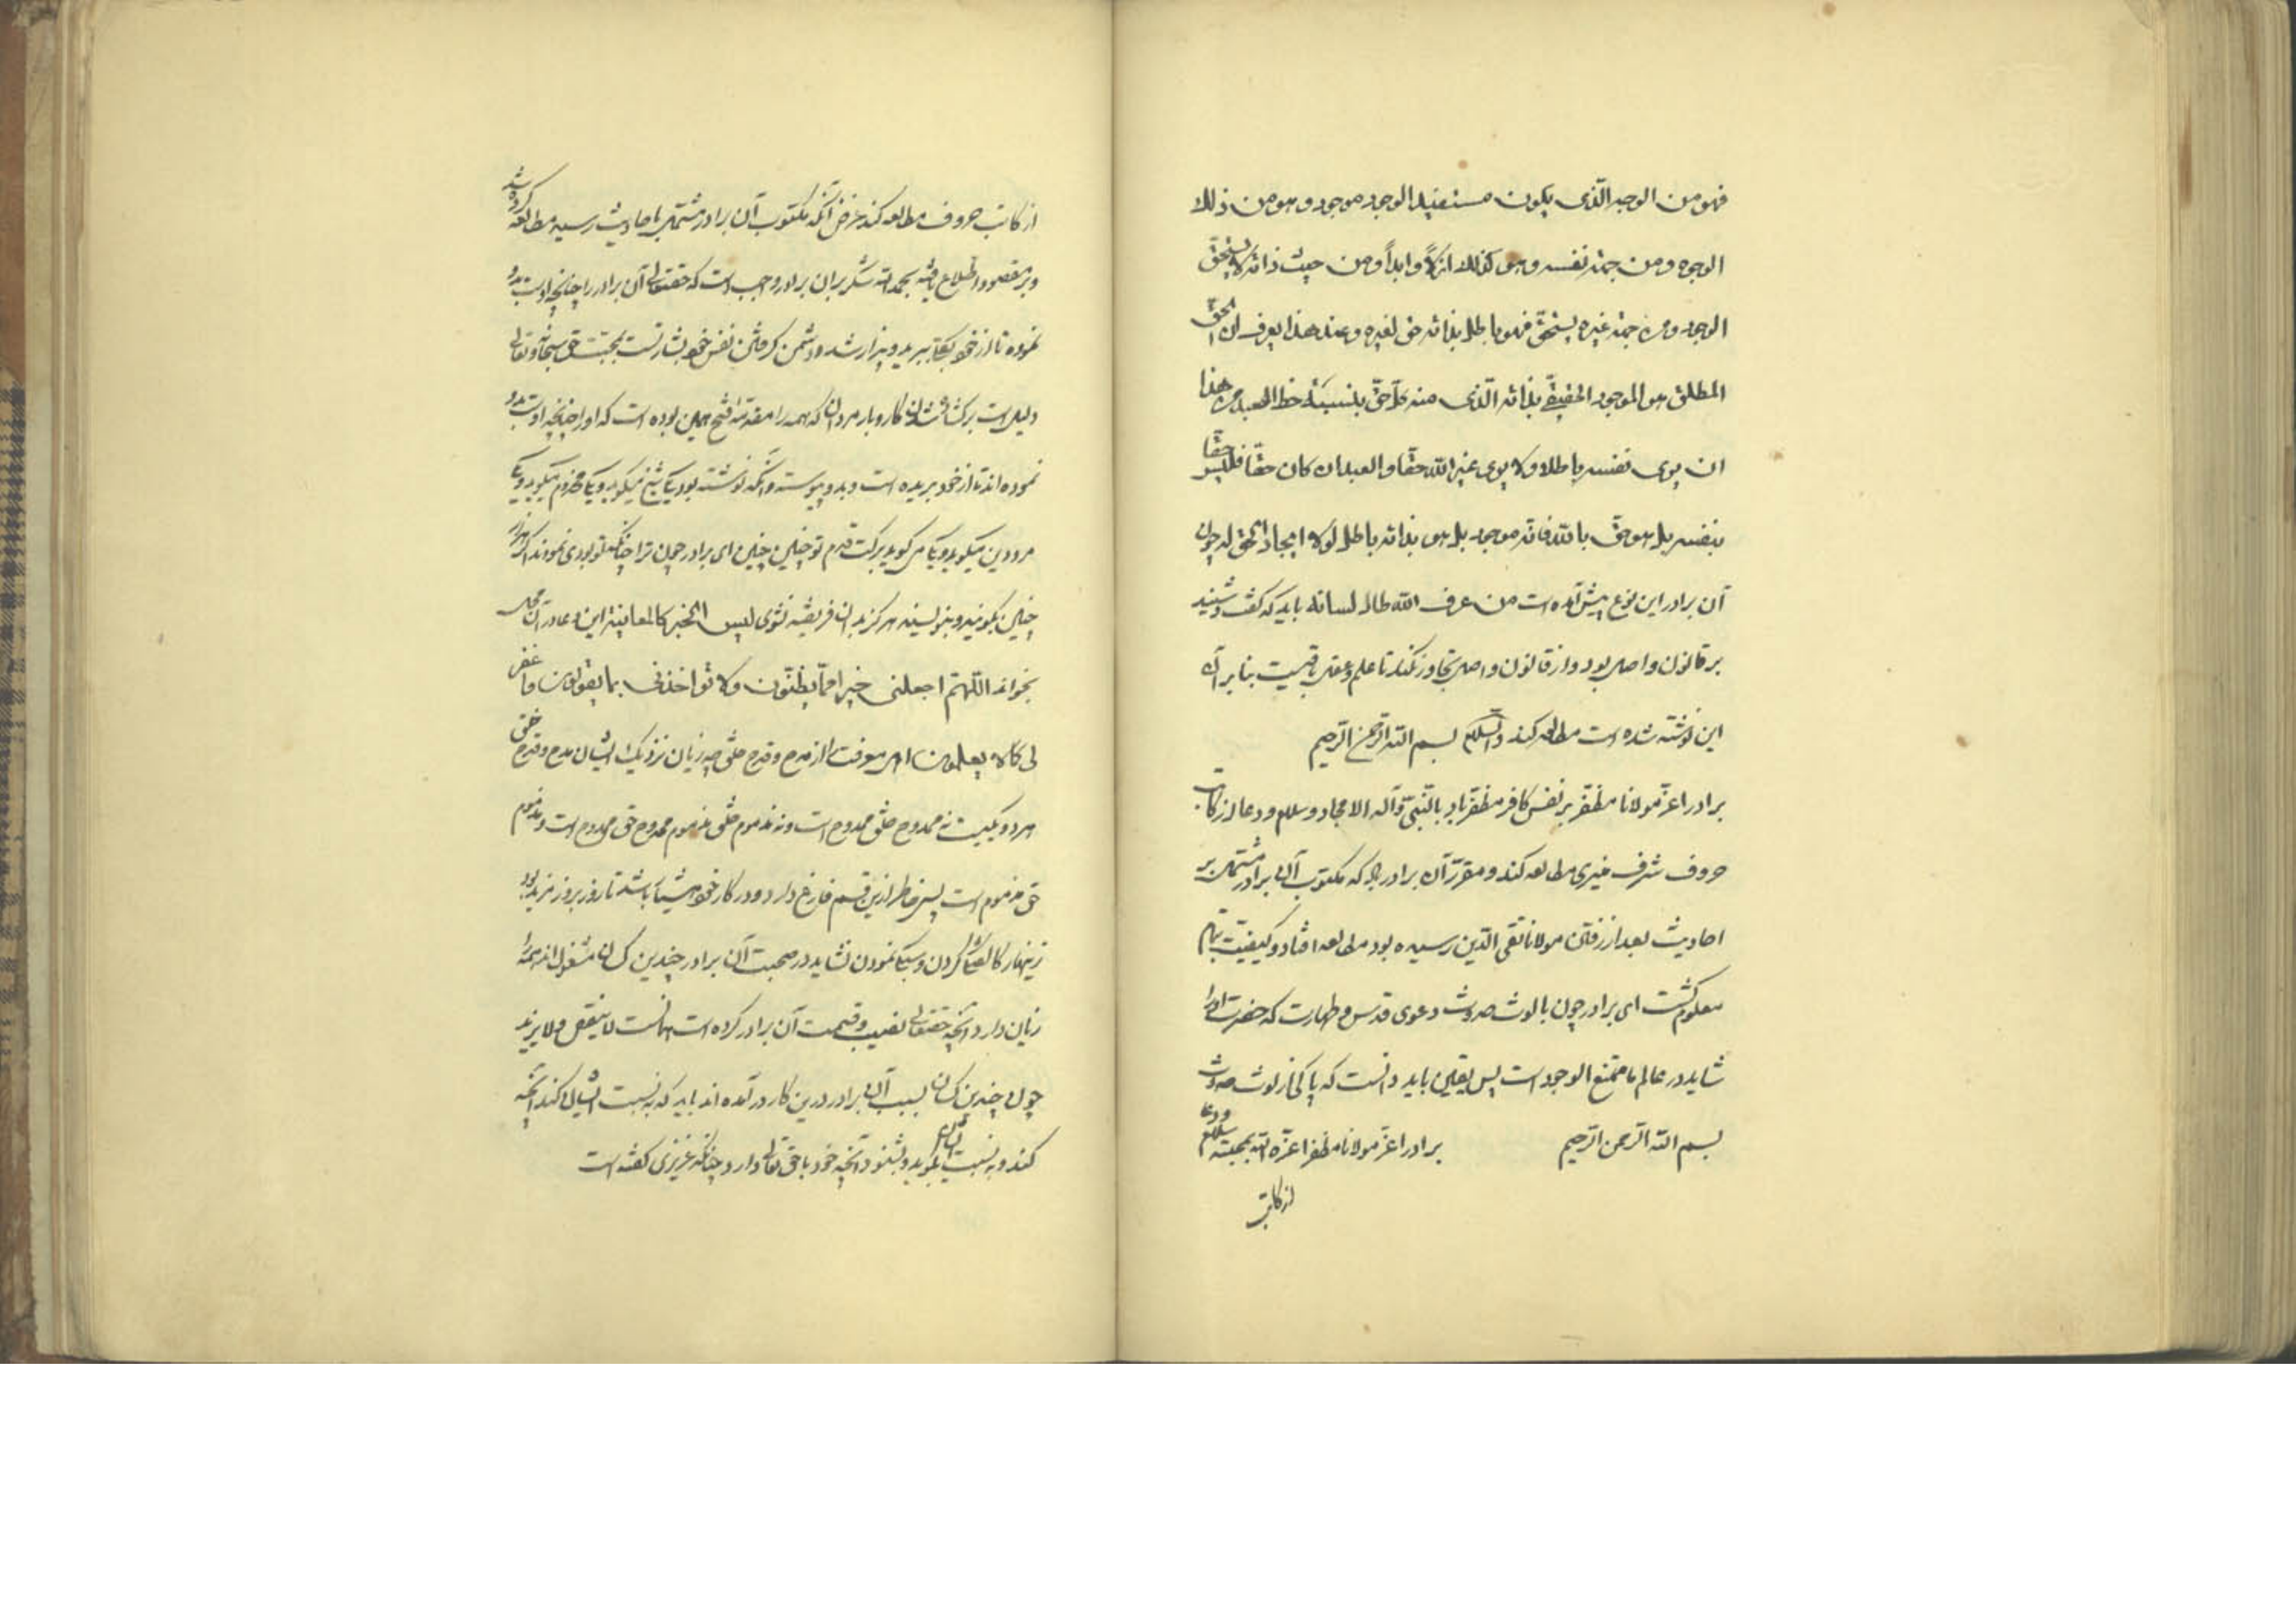 فهو من الوجه الّذی یکون مستفید الوجود موجود و هو من ذلک
الوجوه و من جهة نفسه و هو کذلک ازلاً و ابداً و من حیث ذاته لا یستحقّ
الوجود و من جهة غیره یستحقّ فهو باطل بذاته حق لغیره و عند هذا یعرف ان الحقّ
المطلق هو الموجود الحقیقیّ بذاته الّذی منه کلّ حقّ بنسبته حظ العبد من هذا
ان یری نفسه باطلا و لا یری غیر الله حقّا و العبد ان کان حقّا فلیس حقّا
بنفسه بل هو حقّ بالله فانه موجود بل هو بذاته باطل لولا ایجاد الحق له چون
آن برادر این نوع پیش آمده است من عرف الله طال لسانه باید که گفت و شنید
بر قانون و اصل بود و از قانون و اصل تجاوز نکند تا علم و عقل باقیست بنابر آن
این نوشته شده است مطالعه کند والسّلام بسم الله الرّحمن الرّحیم
برادر اعزّ مولانا مظفّر بر نفس کافر مظفّر باد بالنّبیّ و آله الامجاد و سلام و دعا از کاتب
حروف شرف منیری مطالعه کند و مقرّر آن برادر باد که مکتوب آن برادر مشتمل بر
احادیث بعد از رفتن مولانا تقی الدّین رسیده بود مطالعه افتاد و کیفیّت تمام
معلوم گشت ای برادر چون با لوث حدوث دعوی قدس و طهارت که حضرت او را
شاید در عالم ما ممتنع الوجود است پس یقین باید دانست که پاکی از لوث حدوث
بسم الله الرّحمن الرّحیم برادر اعزّ مولانا مظفر اعزّه الله بمحبته سلام و دعا
از کاتب
از کاتب حروف مطالعه کند غرض آنکه مکتوب آن برادر مشتمل با حادیث رسید مطالعه کرده شد
و بر مقصود اطلاع یافته بحمد الله شکر بر آن برادر واجب است که حقتعالی آن برادر را چنانچه اوست بدو
نموده تا از خود بکلی ببرید و بیزار شد و دشمن گرفتن نفس خود بشارتست بمحبت حق سبحانه و تعالی
دلیل است بر کشایش کار و بار مردان که همه را مقدمه فتح همین بوده است که او را چنانچه اوست بدو
نموده اند تا از خود بریده است و بدو پیوسته و آنکه نوشته بود یکی شیخ میگوید و یکی مخدوم میگوید و یکی
مرد دین میگوید و یکی میگوید برکت قدم تو چنین چنین ای برادر چون ترا چنانکه تو بودی نمودند اگر هزار
چنین بگویند و بنویسند هرگز بدان فریفته نشوی لیس الخبر کالمعاینة این دعا در آن محل
بخواند اللّهمّ اجعلنی خیرا ممّا یظنّون و لا تؤاخذنی بما یقولون و اغفر
لی ما لا یعلمون اهل معرفت را از مدح و قدح خلق چه زیان نزدیک ایشان مدح و قدح خلق
هر دو یکیست نه ممدوح خلق ممدوح است و نه مذموم خلق مذموم ممدوح حق ممدوح است و مذموم
حق مذموم است پس خاطر ازین قسم فارغ دارد و در کار خود هشیار باشد تا روز بروز مزید بود
زینهار کالعشار کردن و سبکی نمودن نشاید در صحبت آن برادر چندین کسان مشغول اند همه را
زیان دارد و آنچه حقتعالی نصیب و قسمت آن برادر کرده است همانست لا ینقص و لا یزید
چون چندین کسان بسبب آن برادر درین کار درآمده اند باید که به نسبت ایشان کند آنچه
کند و به نسبت ایشان گوید و بشنود و آنچه خود با حق تعالی دارد چنانکه عزیزی گفته است